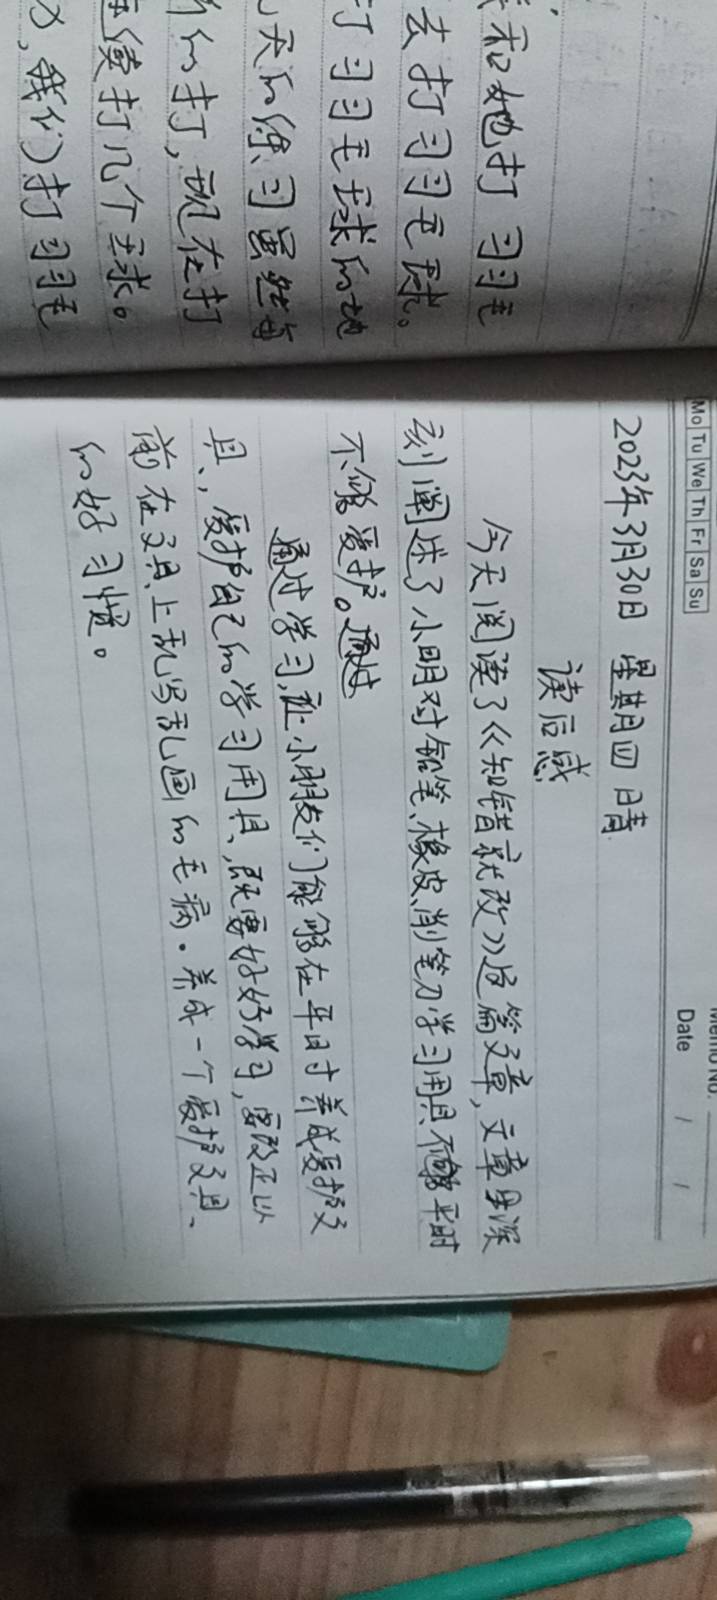 和她打羽毛
去打羽毛球。
打羽毛球的地
天的练习虽然每
的打,现在打
连续打几个球。
,我们打羽毛
Memo No.
Mo Tu We Th Fr Sa Su
Date / /
2023年3月30日 星期四 晴
读后感
今天阅读了《知错就改》这篇文章,文章深
刻阐述了小明对铅笔、橡皮、削笔刀学习用具平时
不够爱护。通过
通过学习,让小朋友们能够在平日时养成爱护文
具,爱护自己的学习用具,既要好好学习,要改正以
前在文具上乱写乱画的毛病.养成一个爱护文具、
的好习惯。